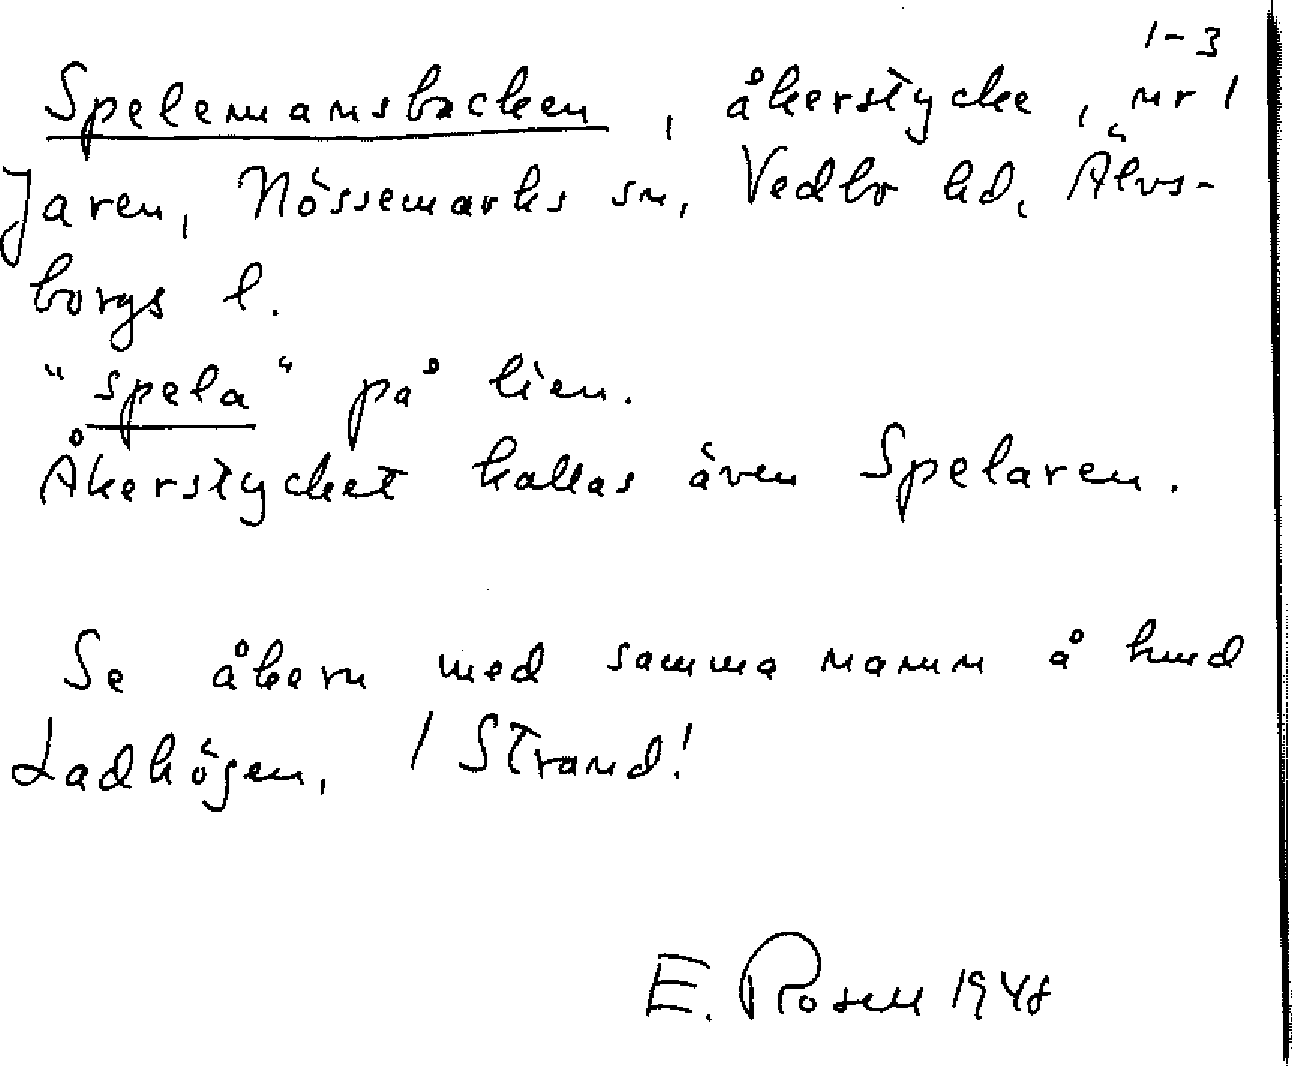 1-3
Spelemansbacken, åkerstycke, nr 1
Jaren, Nössemarks sn, Vedbo hd, Älvs-
borgs l.
"spela" på lien.
Åkerstycket kallas även Spelaren.
Se åkern med samma namn å hmd
Ladhögen, 1 Strand!
E. Rosell 1948